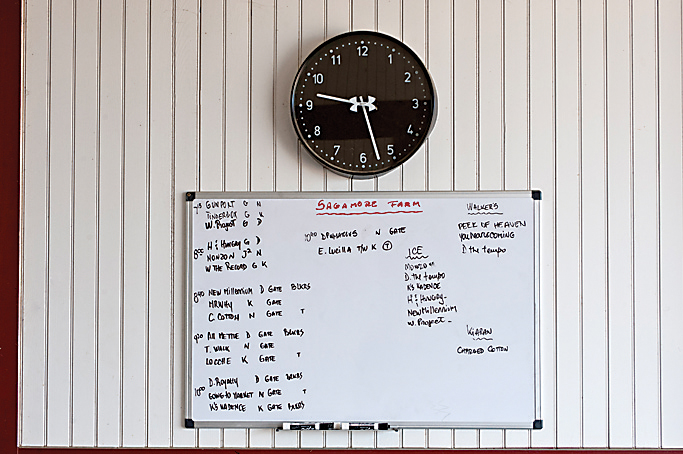 12
1
2
3
4
5
6
7
8
9
10
11
SAGAMORE FARM
GUNPORT G N
TINDERBOX G K
W. Project G D
H & HUNGRY G D
MONZON J2 N
W THE RECORD G K
840 NEW MILLENNIUM D GATE BLKRS
MRWHY K GATE
C. COTTON N GATE T
920 PM METTLE D GATE BLKRS
T. WALK N GATE
LOCCHE K GATE T
1000 D. ROYALTY D GATE BLKRS
GOING TO MARKET N GATE T
K'S KADENCE K GATE BLKRS
N GATE
E. LUCILLA T/W K T
ICE
MONZON
D. the tempo
K'S KADENCE
H & HUNGRY
NEW MILLENNIUM
W. Project
WALKERS
PEEK OF HEAVEN
YOUNOURCOMING
D. the tempo
KIARAN
CHARGED COTTON